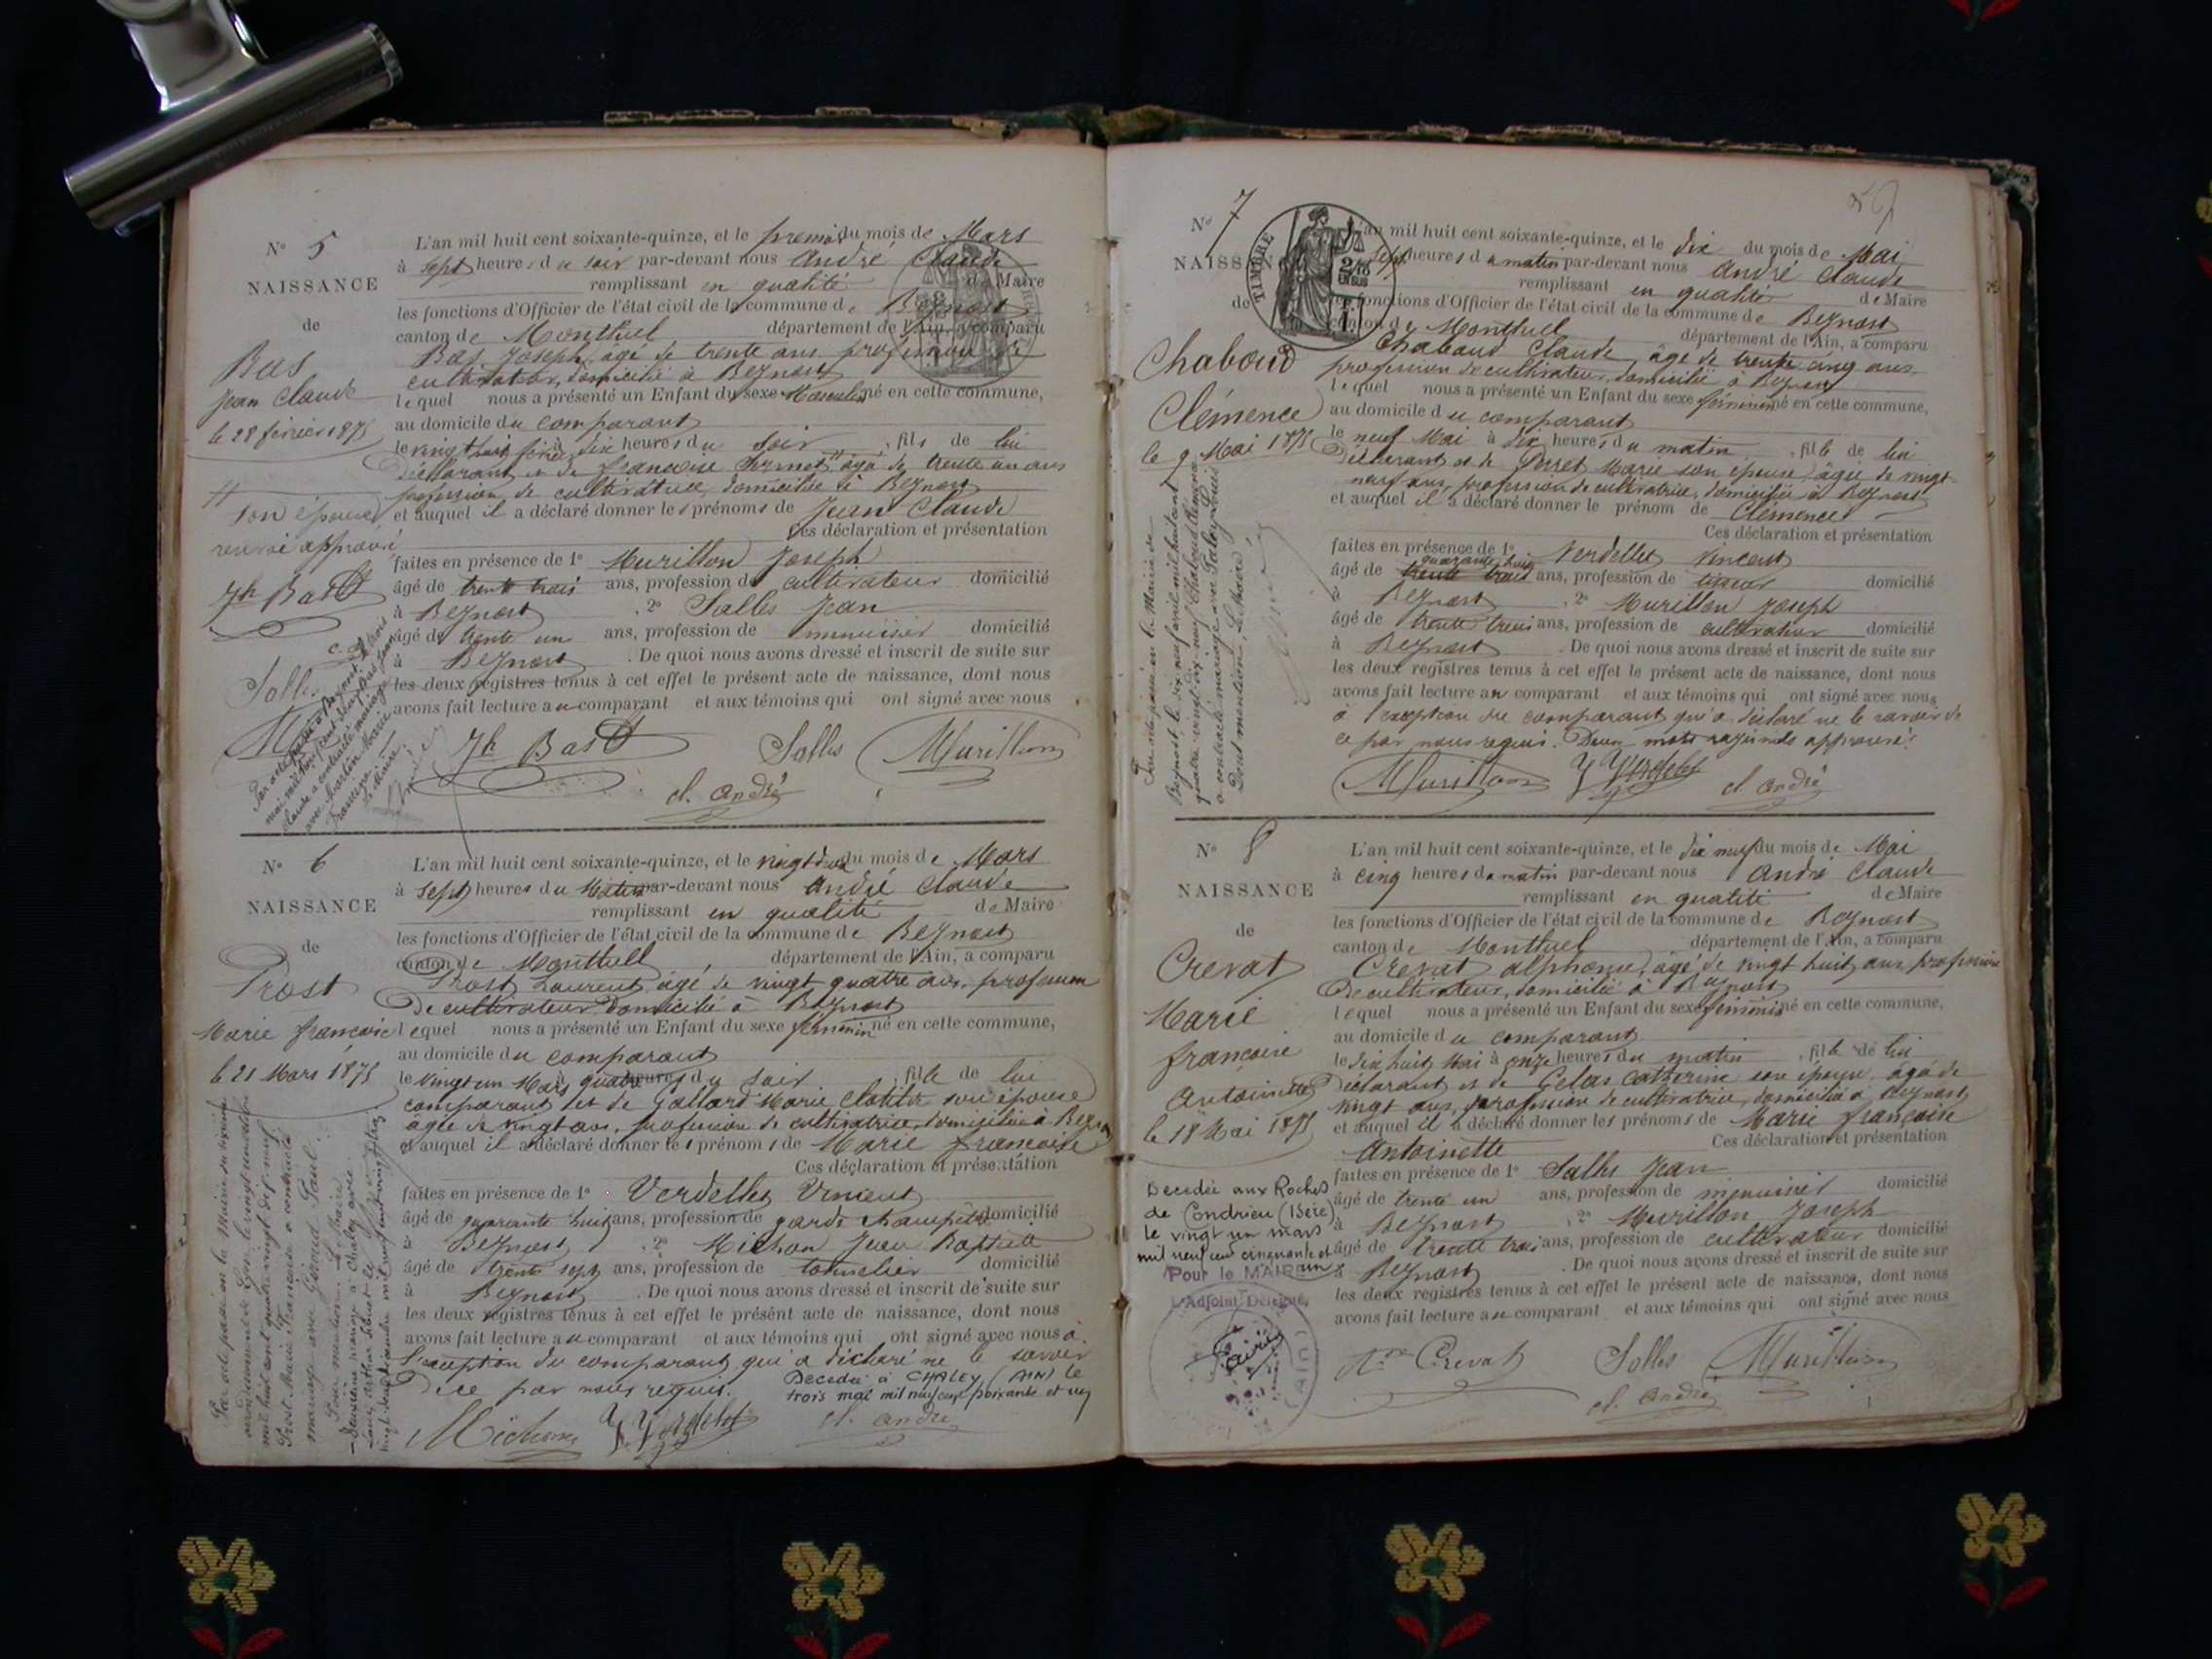 N° 5
NAISSANCE
de
Bas
Jean Claude
le 28 février 1875
son épouse
renvoi approuvé
Jh Bas
L'an mil huit cent soixante-quinze, et le premier du mois de Mars
à sept heures du soir par-devant nous André Claude
remplissant en qualité de Maire
les fonctions d'Officier de l'état civil de la commune de Beynost
canton de Montluel département de l'Ain, a comparu
Bas Joseph, âgé de trente ans, profession de
cultivateur, domicilié à Beynost
lequel nous a présenté un Enfant du sexe Masculin né en cette commune,
au domicile du comparant
le vingt huit février à dix heures du soir, fils de lui
Déclarant et de françoise âgée de trente un ans
profession de cultivatrice, domiciliée à Beynost
et auquel il a déclaré donner les prénoms de Jean Claude
Ces déclaration et présentation
faites en présence de 1° Murillon Joseph
âgé de trente trois ans, profession de cultivateur domicilié
à Beynost, 2° Salles Jean
âgé de trente un ans, profession de menuisier domicilié
à Beynost. De quoi nous avons dressé et inscrit de suite sur
les deux registres tenus à cet effet le présent acte de naissance, dont nous
avons fait lecture au comparant et aux témoins qui ont signé avec nous
Jh Bas Salles Murillon
cl. André
N° 6
NAISSANCE
de
Prost
Marie françoise
le 21 Mars 1875
L'an mil huit cent soixante-quinze, et le vingt deux du mois de Mars
à sept heures du Matin par-devant nous André Claude
remplissant en qualité de Maire
les fonctions d'Officier de l'état civil de la commune de Beynost
canton de Montluel, département de l'Ain, a comparu
Prost Laurent, âgé de vingt quatre ans, profession
De cultivateur Domicilié à Beynost
lequel nous a présenté un Enfant du sexe féminin né en cette commune,
au domicile du comparant
le vingt un Mars à quatre heures du soir, fille de lui
comparant et de Gallard Marie Clotilde son épouse
âgée de vingt ans, profession de cultivatrice, domiciliée à Beynost
et auquel il a déclaré donner les prénoms de Marie françoise
Ces déclaration et présentation
faites en présence de 1° Verdellet Vincent
âgé de quarante huit ans, profession de garde champêtre domicilié
à Beynost, 2° Michon Jean Baptiste
âgé de trente sept ans, profession de tonnelier domicilié
à Beynost. De quoi nous avons dressé et inscrit de suite sur
les deux registres tenus à cet effet le présent acte de naissance, dont nous
avons fait lecture au comparant et aux témoins qui ont signé avec nous à
l'exception du comparant qui a déclaré ne le savoir
De ce par nous requis.
Décédée à CHALEY (AIN) le
trois mai mil neuf cent soixante et un
Michon Verdellet cl. André
N° 7
NAISSANCE
de
TIMBRE
Chaboud
Clémence
le 9 Mai 1875
L'an mil huit cent soixante-quinze, et le dix du mois de Mai
à sept heures du matin par-devant nous André Claude
remplissant en qualité de Maire
les fonctions d'Officier de l'état civil de la commune de Beynost
canton de Montluel département de l'Ain, a comparu
Chaboud Claude, âgé de trente cinq ans
profession de cultivateur, domicilié à Beynost
lequel nous a présenté un Enfant du sexe féminin né en cette commune,
au domicile du comparant
le neuf Mai à dix heures du matin, fille de lui
Déclarant et de Perret Marie son épouse, âgée de vingt
neuf ans, profession de cultivatrice, domiciliée à Beynost
et auquel il a déclaré donner le prénom de Clémence
Ces déclaration et présentation
faites en présence de 1° Verdellet Vincent
quarante huit
âgé de trente trois ans, profession de domicilié
à Beynost, 2° Murillon Joseph
âgé de trente trois ans, profession de cultivateur domicilié
à Beynost. De quoi nous avons dressé et inscrit de suite sur
les deux registres tenus à cet effet le présent acte de naissance, dont nous
avons fait lecture au comparant et aux témoins qui ont signé avec nous
à l'exception du comparant qui a déclaré ne le savoir de
ce par nous requis. Deux mots rayés nuls approuvés
Murillon Verdellet cl. André
N° 8
NAISSANCE
de
Crevat
Marie
françoise
Antoinette
le 18 Mai 1875
Décédée aux Roches
de Condrieu (Isère)
le vingt un mars
mil neuf cent cinquante et
un
Pour le MAIRE
L'Adjoint Délégué,
L'an mil huit cent soixante-quinze, et le dix neuf du mois de Mai
à cinq heures du matin par-devant nous André Claude
remplissant en qualité de Maire
les fonctions d'Officier de l'état civil de la commune de Beynost
canton de Montluel département de l'Ain, a comparu
Crevat alphonse, âgé de vingt huit ans, profession
De cultivateur, domicilié à Beynost
lequel nous a présenté un Enfant du sexe féminin né en cette commune,
au domicile du comparant
le dix huit Mai à onze heures du matin, fille de lui
Déclarant et de Gelas Catherine son épouse, âgée de
vingt ans, profession de cultivatrice, domiciliée à Beynost
et auquel il a déclaré donner les prénoms de Marie françoise
Antoinette Ces déclaration et présentation
faites en présence de 1° Salles Jean
âgé de trente un ans, profession de menuisier domicilié
à Beynost, 2° Murillon Joseph
âgé de trente trois ans, profession de cultivateur domicilié
à Beynost. De quoi nous avons dressé et inscrit de suite sur
les deux registres tenus à cet effet le présent acte de naissance, dont nous
avons fait lecture au comparant et aux témoins qui ont signé avec nous
Crevat Salles Murillon
cl. André